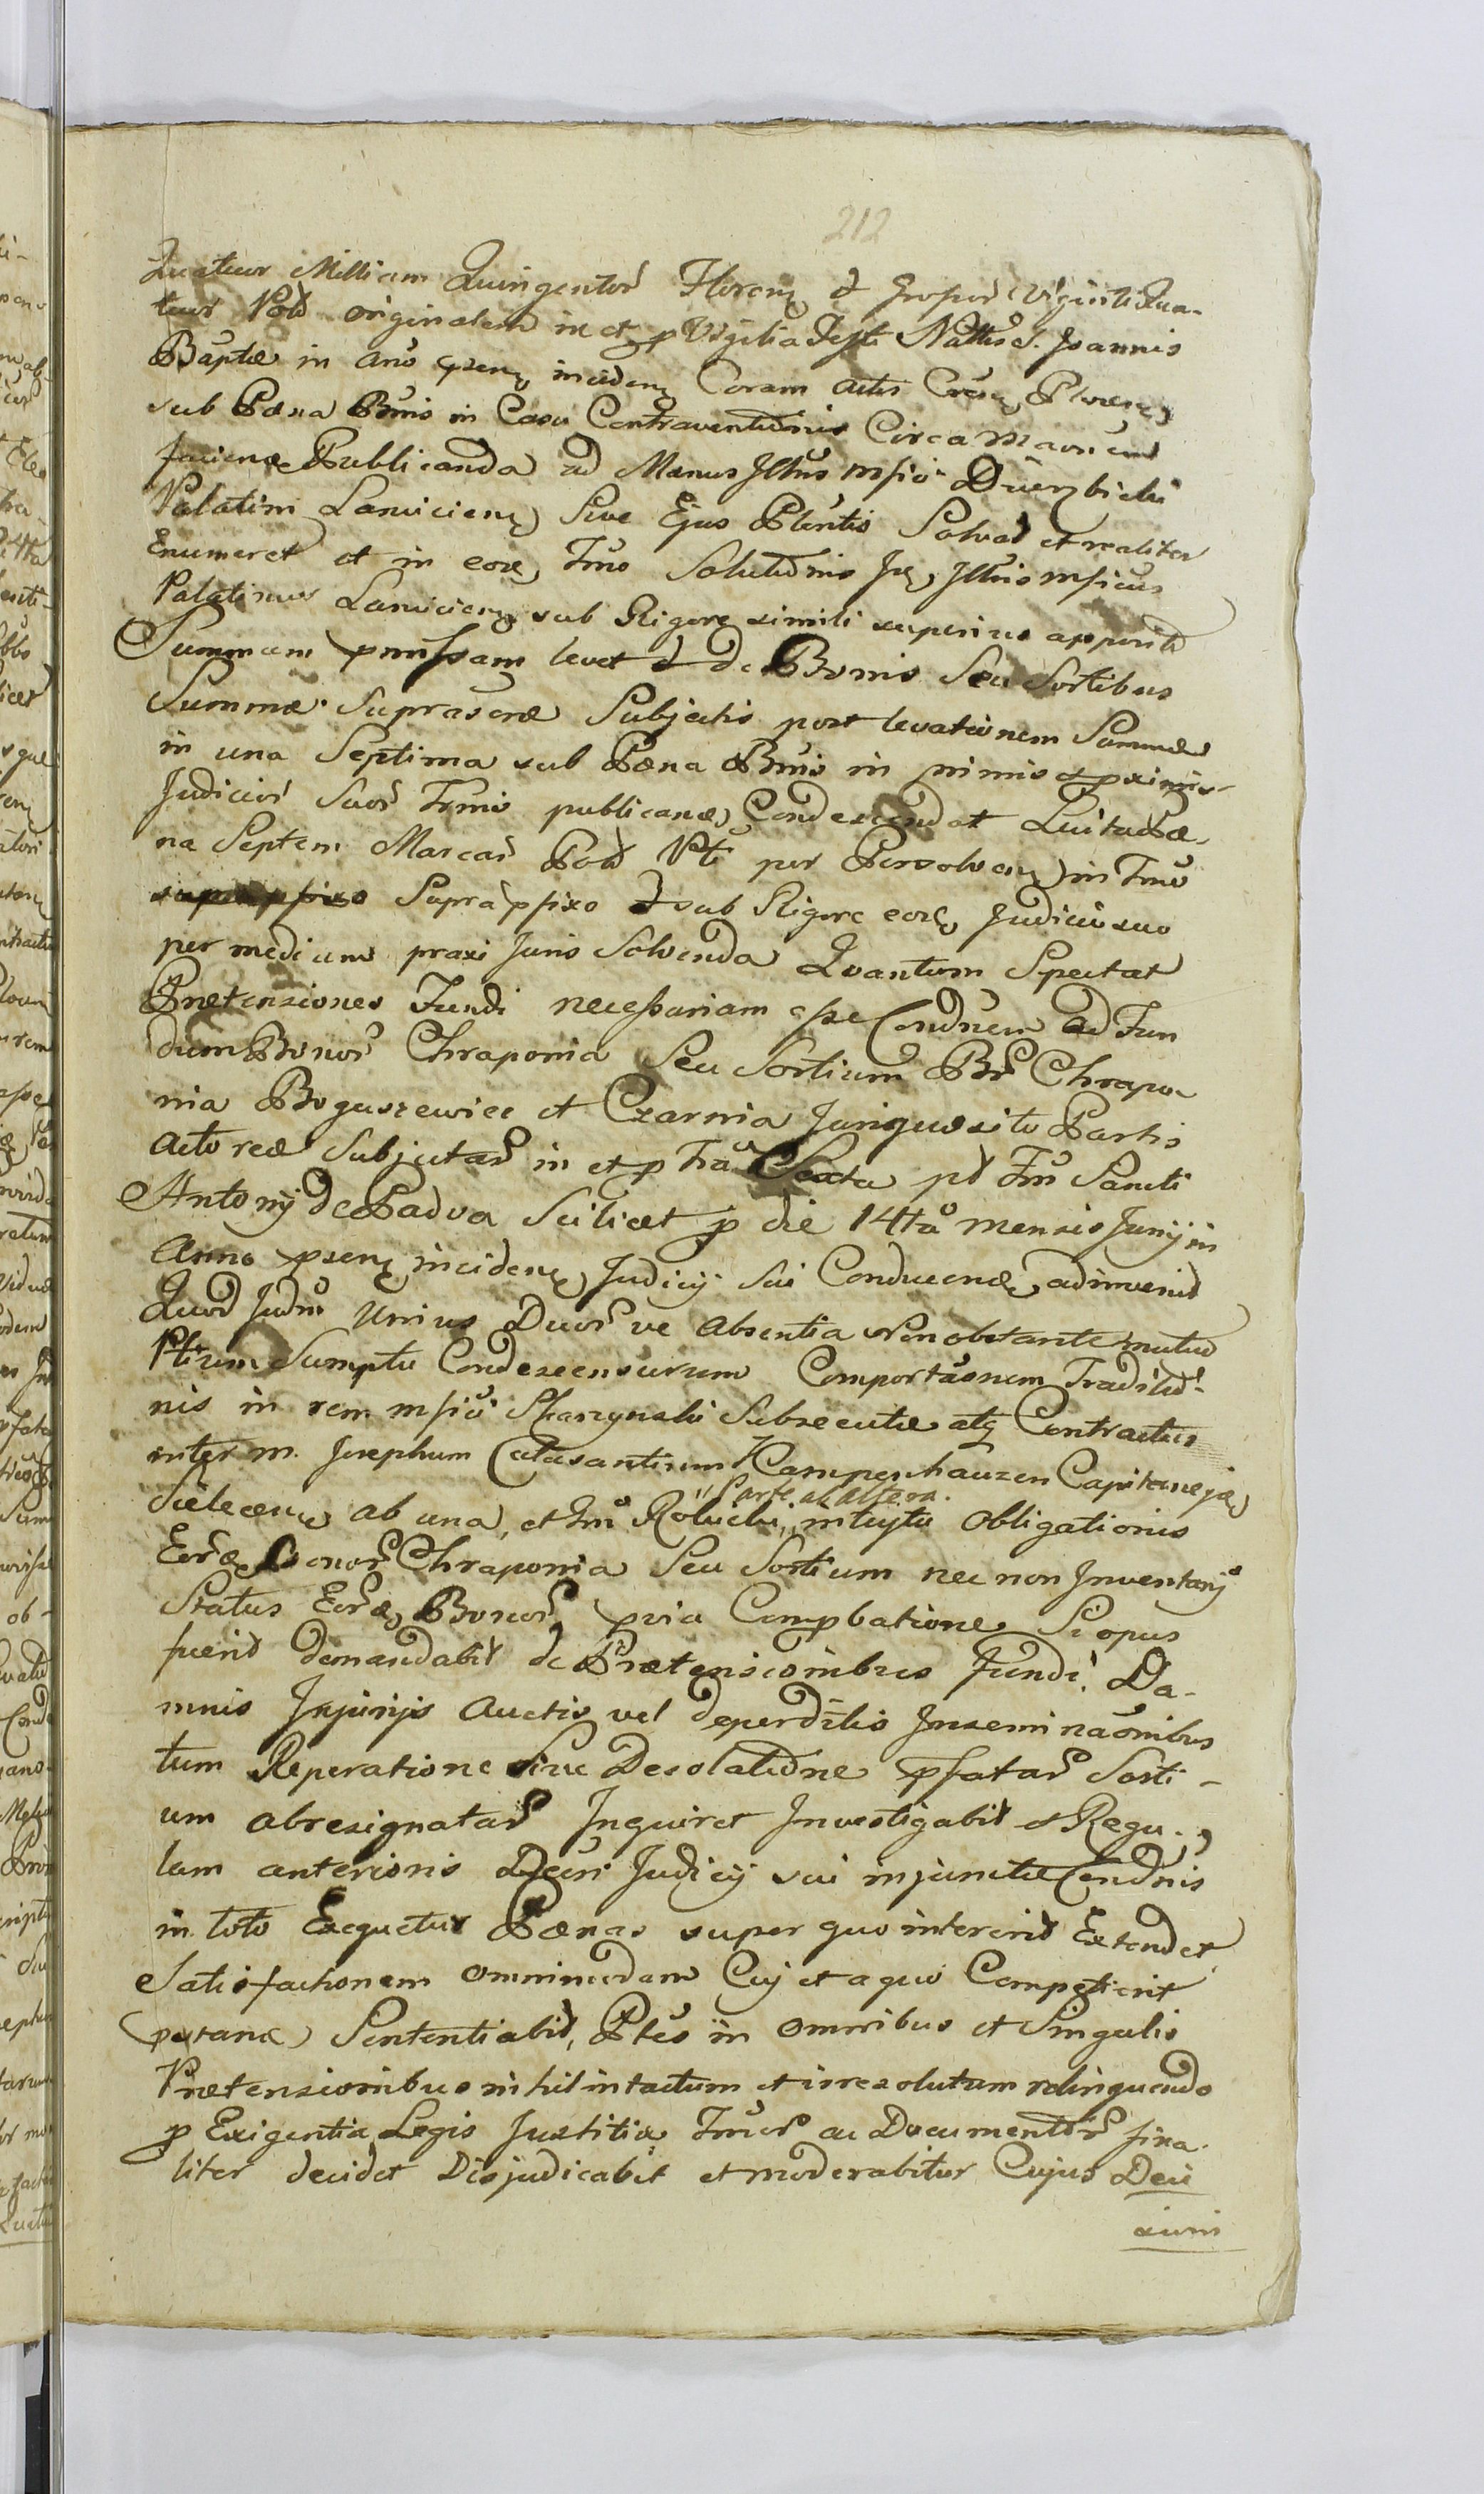 212
Quatuor Millium Quingentor Floren et Grossor Viginti Qua-
tuor Pold originalem in et p Vigilia Festi Nattis S. Joannis
Baptæ in Ano psen inciden Coram actis Cresn Plocen
sub Pæna Bnis in Casu Contraventionis Circa
faciena Publicanda ad Manus Illris Mfici Duerzbicki
Palatini Lanicien Sive Ejus Plentis Solvat et realiter
Enumeret et in eod Tmo Solutionis Ips Illris Mficus
Palatinus Lanicien sub Rigore simili superius apposito
Summam pmissam levet et de Bonis Seu Sortibus
Summæ Suprascræ Subjectis post levationem Summæ
in una Septima sub Pæna Bnis in primis et proximis
Judicior Suor Tmis publicanæ Condescendat Luita Pæ-
na Septem Marcar Pold Pti per Persolven in Tmo
supra pfixo Supra pfixo et sub Rigore eod Judicio suo
per medium praxi Juris Solvenda Quantum Spectat
Prætensiones Fundi necessariam esse Condnem ad Fun
dum Bonor Chraponia Seu Sortium Br Chrapo-
nia Boguszewice et Czarnia Jurique sito Partis
Actoreæ Subjectar in et p Fra Sexta pt Fm Sancti
Antonij de Padva Scilicet p die 14ta mensis Junij in
Anno psen inciden Judicij Sui Conducenæ adinvenit
Quod Judm Unius Duor ve Absentia Non obstante mutuo
Ptium Sumptu Condescensurum Comportaonem Traditio-
nis in rem Mfici Skarzynski Subsecutæ atq Contractus
inter M. Josephum Calasantium Kampenhauzen Capitaneja
Sielecen ab una, et Gm Rolucki "Parte ab altera. intuytu Obligationis
Eor Bonor Chraponia Seu Sortium nec non Inventarij
Status Eor Bonor pvia Compbatione Si opus
fuerit demandabit de Prætensionibus Fundi Da-
mnis Injurijs Auctis vel deperditis Inseminaonibus
tum Reperatione Sive Desolatione pfatar Sorti-
um Abresignatar Inquiret Investigabit et Regu-
lam anterioris Decri Judicij sui injunctæ Condnis
in toto Exequetur Pænas super quo intererit Extendet
Satisfactionem omnimodam Cuj et a quo Competierit
patranæ Sententiabit, Ptes in omnibus et Singulis
Prætensionibus nihil intactum et irresolutum relinquendo
p Exigentia Legis Justitia Jrium ac Documentor fina-
liter decidet Disjudicabit et moderabitur Cujus Deci
sioni